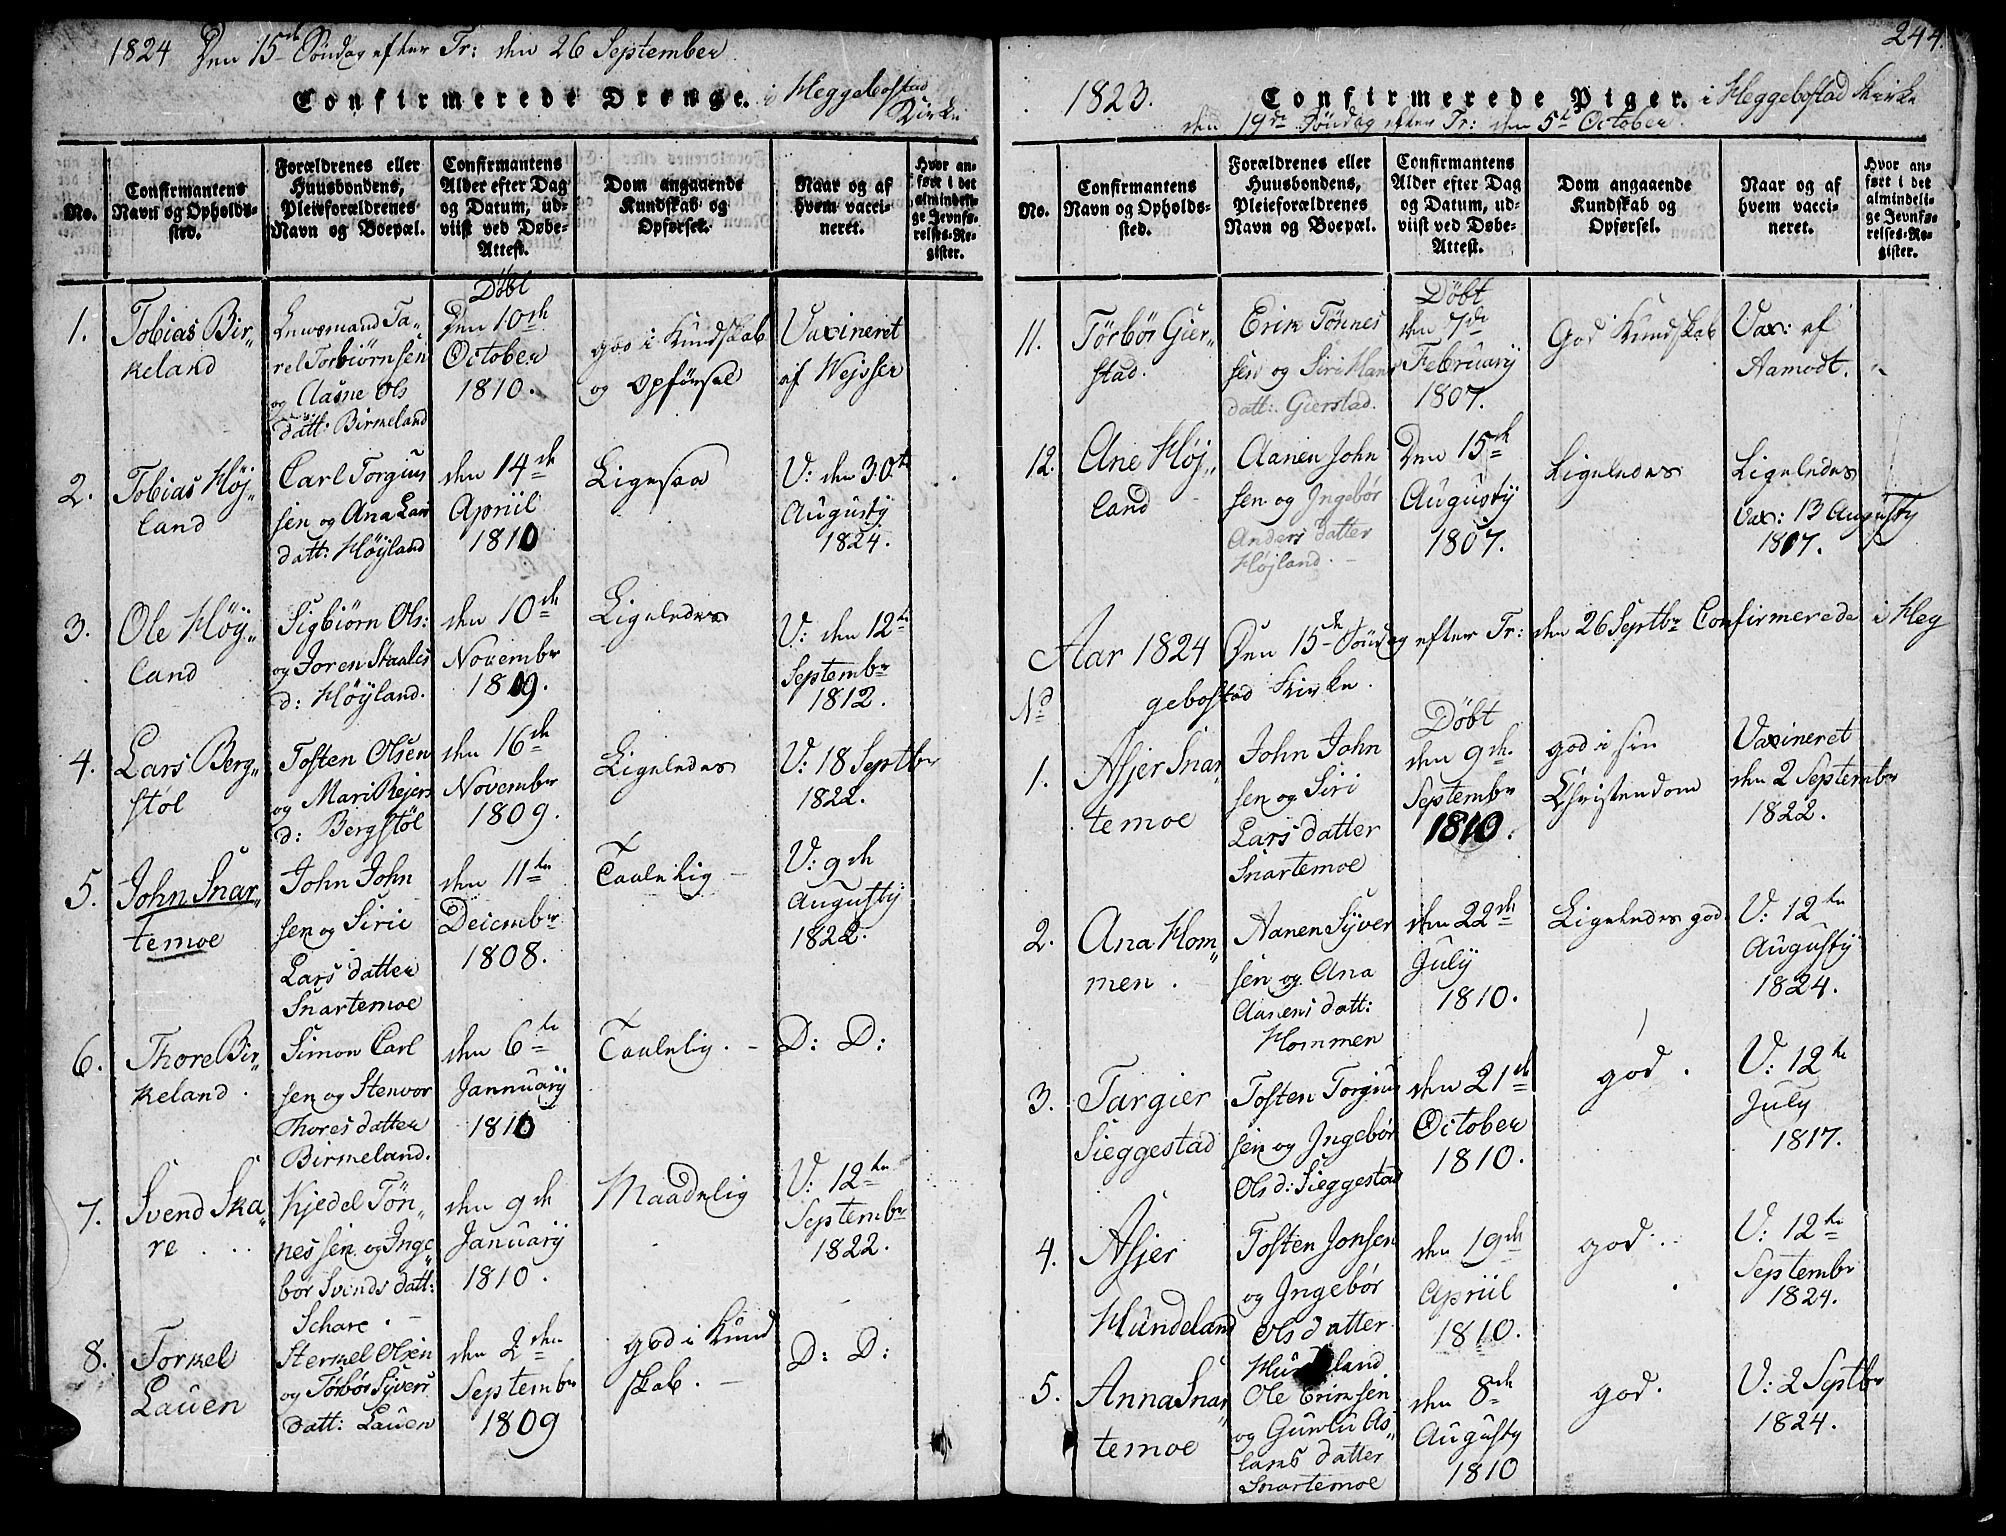 1824 Den 15de Søndag efter Tr: den 26 September
Confirmerede Drenge. i Heggebostad
Kirke
No.
Confirmantens
Navn og Opholds-
sted.
Forældrenes eller
Huusbondens,
Pleieforældrenes
Navn og Boepæl.
Confirmantens
Alder efter Dag
og Datum, ud-
viist ved Døbe-
Attest.
Dom angaaende
Kundskab og
Opførsel.
Naar og af
hvem vacci-
neret.
Hvor an-
ført i det
almindeli-
ge Jevnfø-
relses-Re-
gister.
1.
Tobias Bir„
keland
Lensmand Ta„
rel Torbiørnsen
og Aasne Ols
datt: Birkeland
Døbt
Den 10de
October
1810.
god i Kundskab
og Opførsel
Vaxineret
af Wejsser
2.
Tobias Høj„
land
Carl Torgius
sen og Ana Lars
datt: Høyland
den 14de
Apriil
1810
Ligesaa
V: den 30te
Augusty
1824.
3.
Ole Høy„
land
Sigbiørn Ols:
og Joren Staales
d: Høyland.
den 10de
Novembr
1809.
Ligeledes
V: den 12te
Septembr
1812.
4.
Lars Berg„
støl
Tosten Olsen
og Mari Rejers
d: Bergstøl
den 16de
Novembr
1809.
Ligeledes
V: 18 Septbr
1822.
5.
John Snar„
temoe
John John
sen og Sirie
Lars datter
Snartemoe
den 11te
Deicembr
1808.
Taalelig
V: 9de
Augusty
1822.
6.
Thore Bir„
keland.
Simon Carl
sen og Stenvor
Thores datter
Birkeland.
den 6te
Jannuarÿ
1810
Taalelig.
D: D:
7.
Svend Ska„
re
Kjedel Tøn„
nessen og Inge„
bør Svends datt:
Schare.
den 9de
Januarÿ
1810.
Maadelig
V: 12te
Septembr
1822.
8.
Torkel
Lauen
Sterkel Olsen
og Tørbør Syvers
datt: Lauen
den 2den
Septembr
1809
god i Kund
skab.
D: D:
244.
1823.
Confirmerede Piger. i Heggebostad Kirke
den 19de Søndag efter Tr: den 5te October
No.
Confirmantens
Navn og Opholds-
sted.
Forældrenes eller
Huusbondens,
Pleieforældrenes
Navn og Boepæl.
Confirmantens
Alder efter Dag
og Datum, ud-
viist ved Døbe-
Attest.
Dom angaaende
Kundskab og
Opførsel.
Naar og af
hvem vacci-
neret.
Hvor an-
ført i det
almindeli-
ge Jevnfø-
relses-Re-
gister.
11.
Tørbør Gier„
stad.
Erik Tønnes
sen og Siri Hans
datt: Gierstad.
Døbt
den 7de
Februarÿ
1807.
God Kundskab
Vax: af
Aamodt.
12.
Ane Høj„
land
Aanen John
sen og Ingebør
Anders datter
Højland.
Den 15de
Augustÿ
1807.
Ligeledes
Ligeledes
Vax: 13 Augusty
1807.
Aar 1824 Den 15de Søndag efter Tr: den 26 Septbr Confirmerede i Heg
gebostad Kirke.
No
1.
Asjer Snar„
temoe
John John
sen og Siri
Lars datter
Snartemoe
Døbt
den 9de
Septembr
1810.
god i sin
Christendom
Vaxineret
den 2 Septembr
1822.
2.
Ana Hom„
men.
Aanen Syver
sen og Ana
Aanens datt:
Hommen
den 22de
Julÿ
1810.
Ligeledes god.
V: 12te
Augustÿ
1824.
3.
Targier
Sieggestad
Tosten Torgius
sen og Ingebør
Ols d: Sieggestad
den 21de
October
1810.
god.
V: 12te
July
1817.
4.
Asjer
Hundeland
Tosten Jonsen
og Ingebør
Ols datter
Hundeland
den 19de
Apriil
1810.
god.
V: 12te
Septembr
1824.
5.
Anna Snar„
temoe
Ole Eriksen
og Gunlu As„
lans datter
Snartemoe
den 8de
Augusty
1810
god.
V: 2 Septbr
1824.